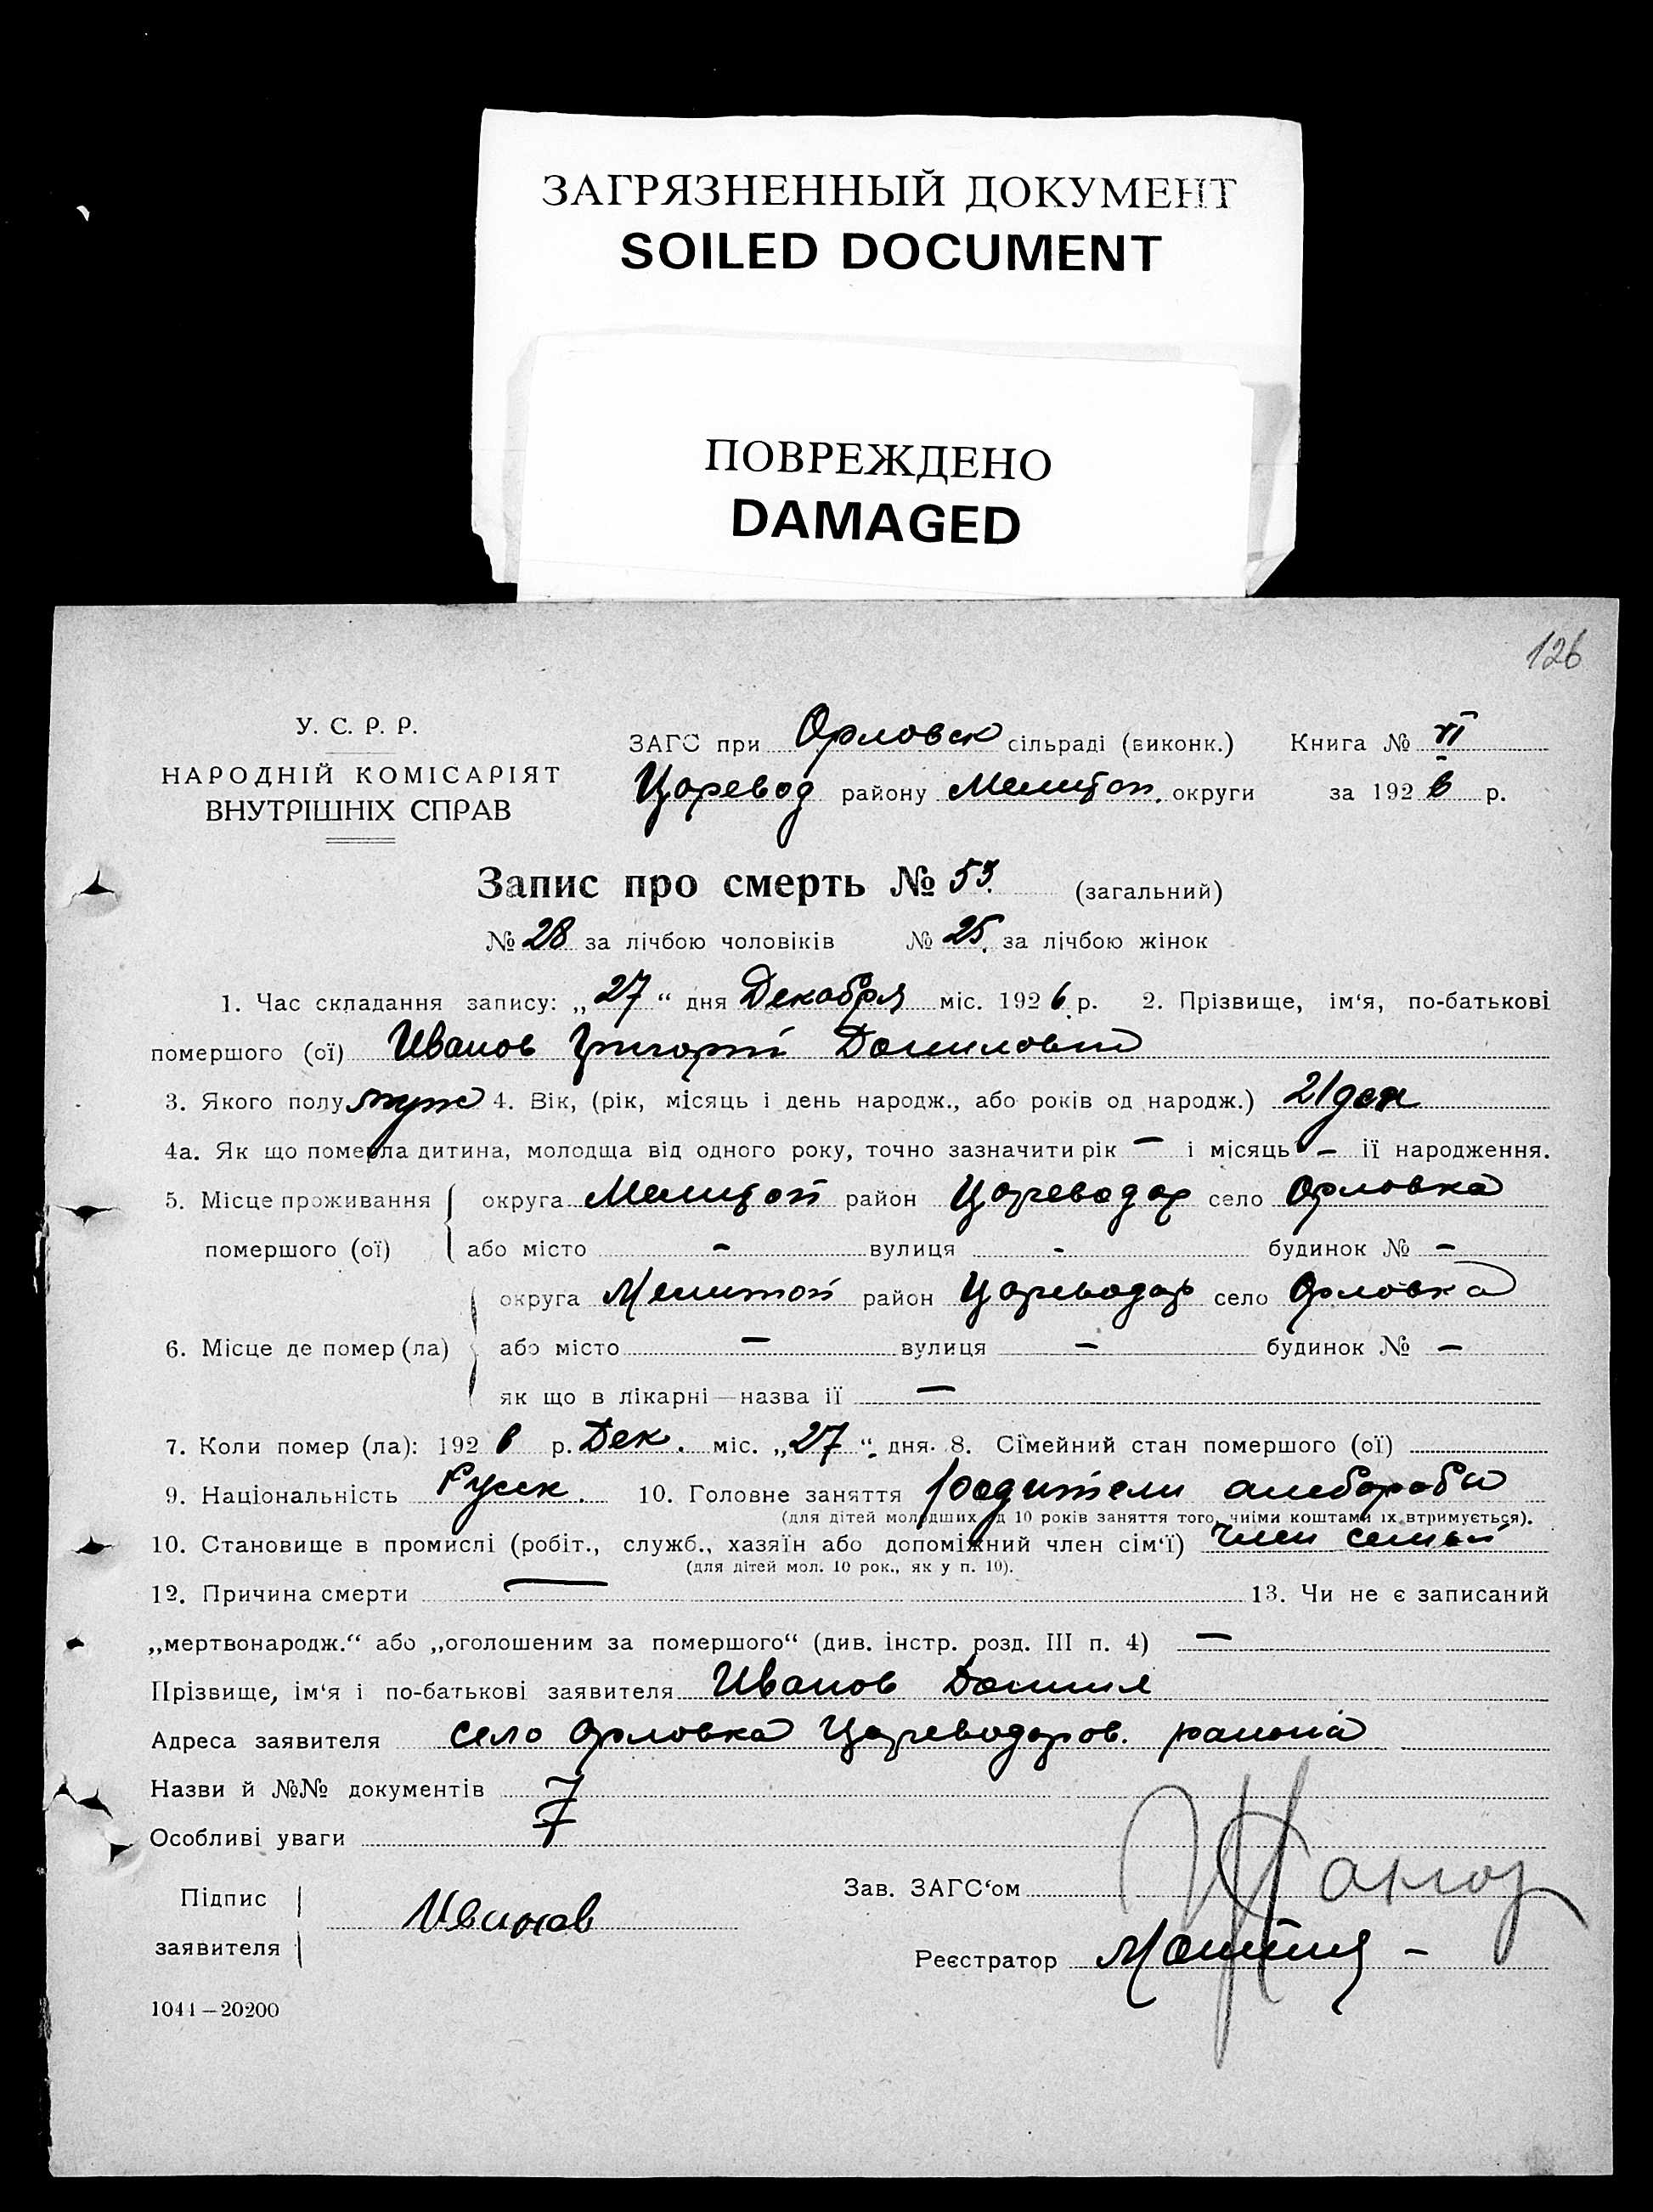 ЗАГРЯЗНЕННЫЙ ДОКУМЕНТ
SOILED DOCUMENT
ПОВРЕЖДЕНО
DAMAGED
126
У. С. Р. Р.
НАРОДНІЙ КОМІСАРІЯТ
ВНУТРІШНІХ СПРАВ
ЗАГС при Орловск сільраді (виконк.) Книга № VI
Царевод району Мелитоп. округи за 1926 р.
Запис про смерть № 53. (загальний)
№ 28 за лічбою чоловіків № 25. за лічбою жінок
1. Час складання запису: „27“ дня Декабря міс. 1926 р. 2. Прізвище, ім‘я, по-батькові
помершого (ої) Иванов Григорий Данилович
3. Якого полу муж 4. Вік, (рік, місяць і день народж., або років од народж.) 21 ден
4а. Як що померла дитина, молодща від одного року, точно зазначити рік — і місяць — ії народження.
5. Місце проживання округа Мелитоп район Цареводар село Орловка
помершого (ої) або місто - вулиця - будинок № -
округа Мелитоп район Цареводар село Орловка
6. Місце де помер (ла) або місто — вулиця — будинок № —
як що в лікарні—назва ії —
7. Коли помер (ла): 1926 р. Дек. міс. „27“ дня. 8. Сімейний стан помершого (ої)
9. Національність Русск. 10. Головне заняття родители хлеборобы
(для дітей молодших од 10 років заняття того, чиїми коштами їх втримується).
10. Становище в промислі (робіт., служб., хазяїн або допоміжний член сім‘ї) член семьи
(для дітей мол. 10 рок., як у п. 10).
12. Причина смерти — 13. Чи не є записаний
„мертвонародж.“ або „оголошеним за помершого“ (див. інстр. розд. III п. 4) —
Прізвище, ім‘я і по-батькові заявителя Иванов Данил
Адреса заявителя село Орловка Цареводаров. района
Назви й №№ документів
Особливі уваги
Підпис
заявителя Иванов
Зав. ЗАГС‘ом
Реєстратор
1044—20200